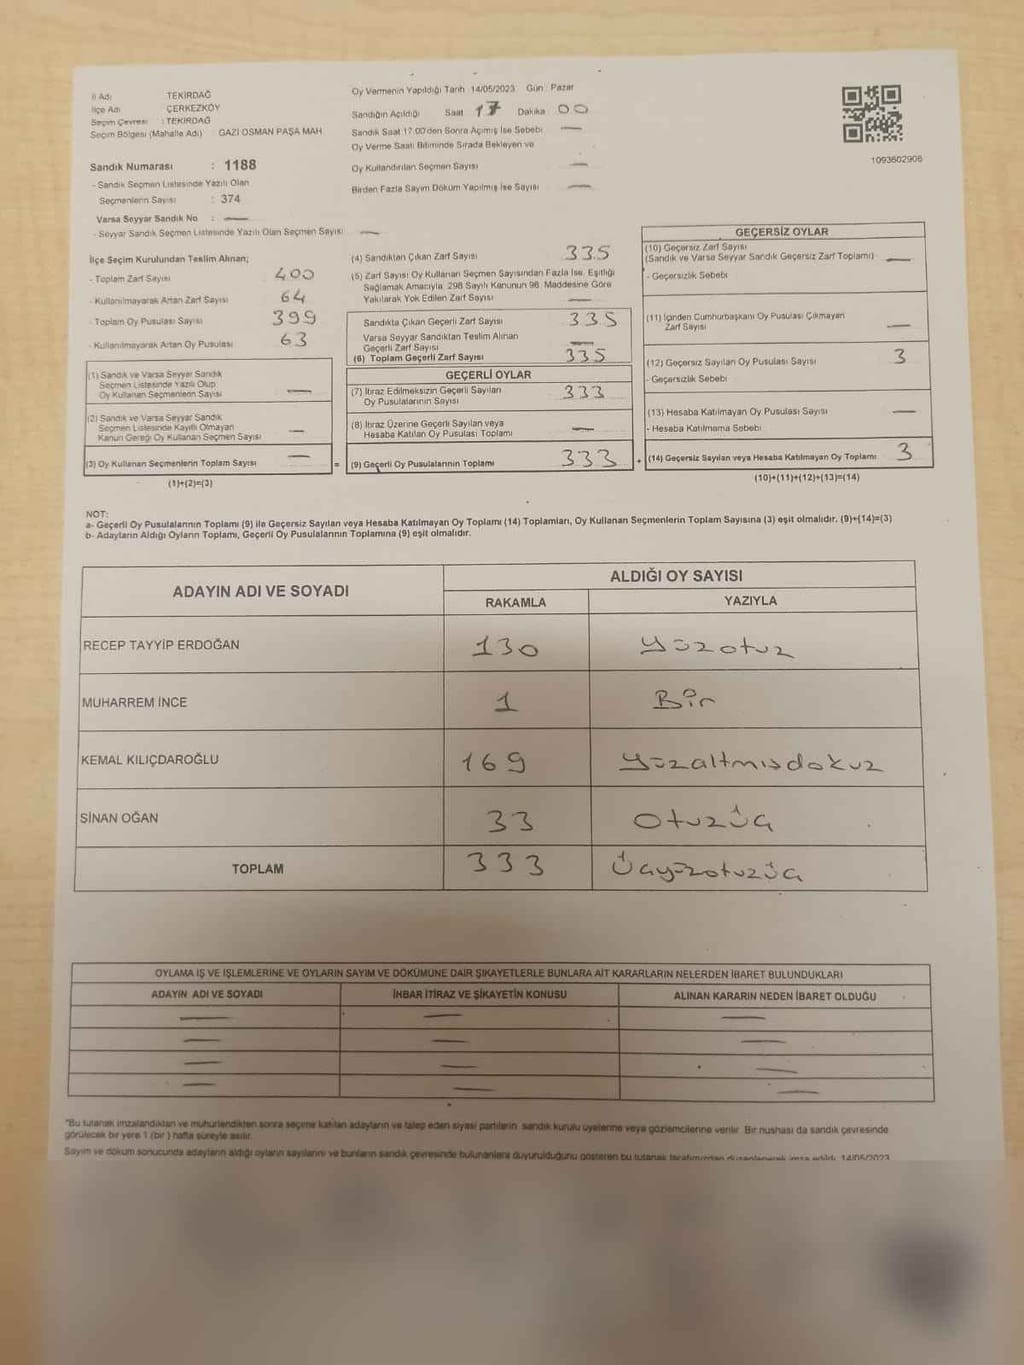 İl Adı TEKİRDAĞ
İlçe Adı ÇERKEZKÖY
Seçim Çevresi : TEKİRDAĞ
Seçim Bölgesi (Mahalle Adı) GAZİ OSMAN PAŞA MAH.
Sandık Numarası : 1188
- Sandık Seçmen Listesinde Yazılı Olan
Seçmenlerin Sayısı : 374
Varsa Seyyar Sandık No : —
- Seyyar Sandık Seçmen Listesinde Yazılı Olan Seçmen Sayısı —
Oy Vermenin Yapıldığı Tarih 14/05/2023 Gün : Pazar
Sandığın Açıldığı Saat 17 Dakika 00
Sandık Saat 17.00'den Sonra Açılmış İse Sebebi —
Oy Verme Saati Bitiminde Sırada Bekleyen ve
Oy Kullandırılan Seçmen Sayısı —
Birden Fazla Sayım Döküm Yapılmış İse Sayısı —
1093602906
İlçe Seçim Kurulundan Teslim Alınan;
- Toplam Zarf Sayısı 400
- Kullanılmayarak Artan Zarf Sayısı 64
- Toplam Oy Pusulası Sayısı 399
- Kullanılmayarak Artan Oy Pusulası 63
(1) Sandık ve Varsa Seyyar Sandık
Seçmen Listesinde Yazılı Olup
Oy Kullanan Seçmenlerin Sayısı —
(2) Sandık ve Varsa Seyyar Sandık
Seçmen Listesinde Kayıtlı Olmayan
Kanun Gereği Oy Kullanan Seçmen Sayısı —
(3) Oy Kullanan Seçmenlerin Toplam Sayısı —
(1)+(2)=(3)
(4) Sandıktan Çıkan Zarf Sayısı 335
(5) Zarf Sayısı Oy Kullanan Seçmen Sayısından Fazla İse, Eşitliği
Sağlamak Amacıyla, 298 Sayılı Kanunun 98. Maddesine Göre
Yakılarak Yok Edilen Zarf Sayısı —
Sandıkta Çıkan Geçerli Zarf Sayısı 335
Varsa Seyyar Sandıktan Teslim Alınan
Geçerli Zarf Sayısı —
(6) Toplam Geçerli Zarf Sayısı 335
GEÇERLİ OYLAR
(7) İtiraz Edilmeksizin Geçerli Sayılan
Oy Pusulalarının Sayısı 333
(8) İtiraz Üzerine Geçerli Sayılan veya
Hesaba Katılan Oy Pusulası Toplamı —
= (9) Geçerli Oy Pusulalarının Toplamı 333 +
GEÇERSİZ OYLAR
(10) Geçersiz Zarf Sayısı
(Sandık ve Varsa Seyyar Sandık Geçersiz Zarf Toplamı) —
- Geçersizlik Sebebi
(11) İçinden Cumhurbaşkanı Oy Pusulası Çıkmayan
Zarf Sayısı —
(12) Geçersiz Sayılan Oy Pusulası Sayısı 3
- Geçersizlik Sebebi
(13) Hesaba Katılmayan Oy Pusulası Sayısı —
- Hesaba Katılmama Sebebi
(14) Geçersiz Sayılan veya Hesaba Katılmayan Oy Toplamı 3
(10)+(11)+(12)+(13)=(14)
NOT:
a- Geçerli Oy Pusulalarının Toplamı (9) ile Geçersiz Sayılan veya Hesaba Katılmayan Oy Toplamı (14) Toplamları, Oy Kullanan Seçmenlerin Toplam Sayısına (3) eşit olmalıdır. (9)+(14)=(3)
b- Adayların Aldığı Oyların Toplamı, Geçerli Oy Pusulalarının Toplamına (9) eşit olmalıdır.
ADAYIN ADI VE SOYADI ALDIĞI OY SAYISI
RAKAMLA YAZIYLA
RECEP TAYYİP ERDOĞAN 130 Yüzotuz
MUHARREM İNCE 1 Bir
KEMAL KILIÇDAROĞLU 169 Yüzaltmışdokuz
SİNAN OĞAN 33 Otuzüç
TOPLAM 333 Üçyüzotuzüç
OYLAMA İŞ VE İŞLEMLERİNE VE OYLARIN SAYIM VE DÖKÜMÜNE DAİR ŞİKAYETLERLE BUNLARA AİT KARARLARIN NELERDEN İBARET BULUNDUKLARI
ADAYIN ADI VE SOYADI İHBAR İTİRAZ VE ŞİKAYETİN KONUSU ALINAN KARARIN NEDEN İBARET OLDUĞU
— — —
— — —
— — —
— — —
"Bu tutanak imzalandıktan ve mühürlendikten sonra seçime katılan adayların ve talep eden siyasi partilerin sandık kurulu üyelerine veya gözlemcilerine verilir. Bir nüshası da sandık çevresinde
görülecek bir yere 1 (bir) hafta süreyle asılır.
Sayım ve döküm sonucunda adayların aldığı oyların sayılarını ve bunların sandık çevresinde bulunanlara duyurulduğunu gösteren bu tutanak tarafımızdan düzenlenerek imza edildi. 14/05/2023